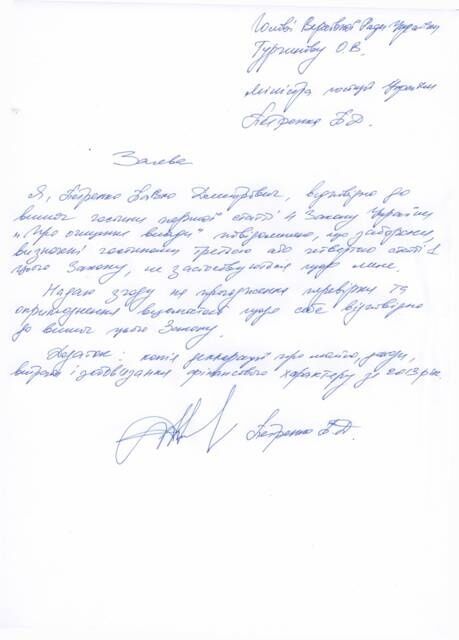 Голові Верховної Ради України
Турчинову О.В.
Міністра юстиції України
Петренка П.Д.
Заява
Я, Петренко Павло Дмитрович, відповідно до
вимог частини першої статті 4 Закону України
„Про очищення влади" повідомляю, що заборони,
визначені частиною третьою або четвертою статті 1
цього Закону, не застосовуються щодо мене.
Надаю згоду на проходження перевірки та
оприлюднення відомостей щодо себе відповідно
до вимог цього Закону.
Додаток: копія декларації про майно, доходи,
витрати і зобов'язання фінансового характеру за 2013 рік.
Петренко П.Д.